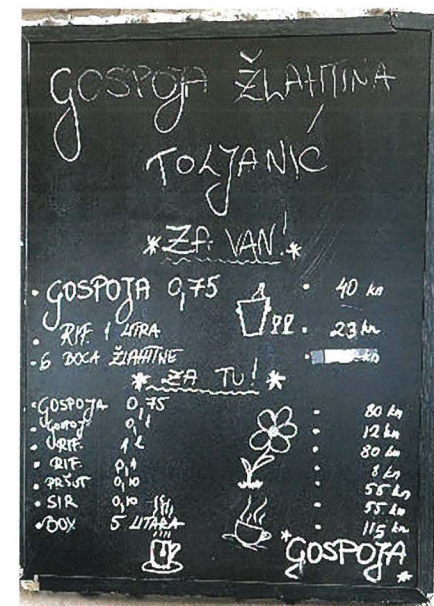 GOSPOJA ŽLAHTINA
TOLJANIĆ
*ZA VAN!*
• GOSPOJA 0,75 40 kn
• RIF. 1 LITRA • 23 kn
• 6 BOCA ŽLAHTINE • kn
* ZA TU! *
• GOSPOJA 0,75 • 80 kn
• GOSPOJ. 0,1 • 12 kn
• RIF. 1 L • 80 kn
• RIF 0,1 • 8 kn
• PRŠUT 0,10 • 55 kn
• SIR 0,10 • 55 kn
• BOX 5 LITARA • 115 kn
*GOSPOJA*